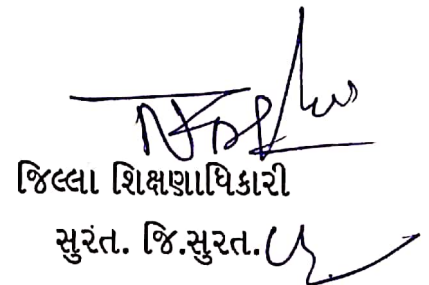 જિલ્લા શિક્ષણાધિકારી
સુરત. જિ.સુરત.